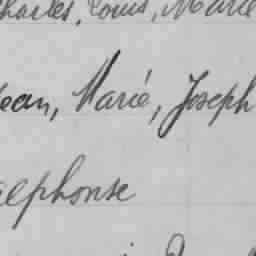 Charles, Louis, Marie
Jean, Marie, Joseph
Alphonse